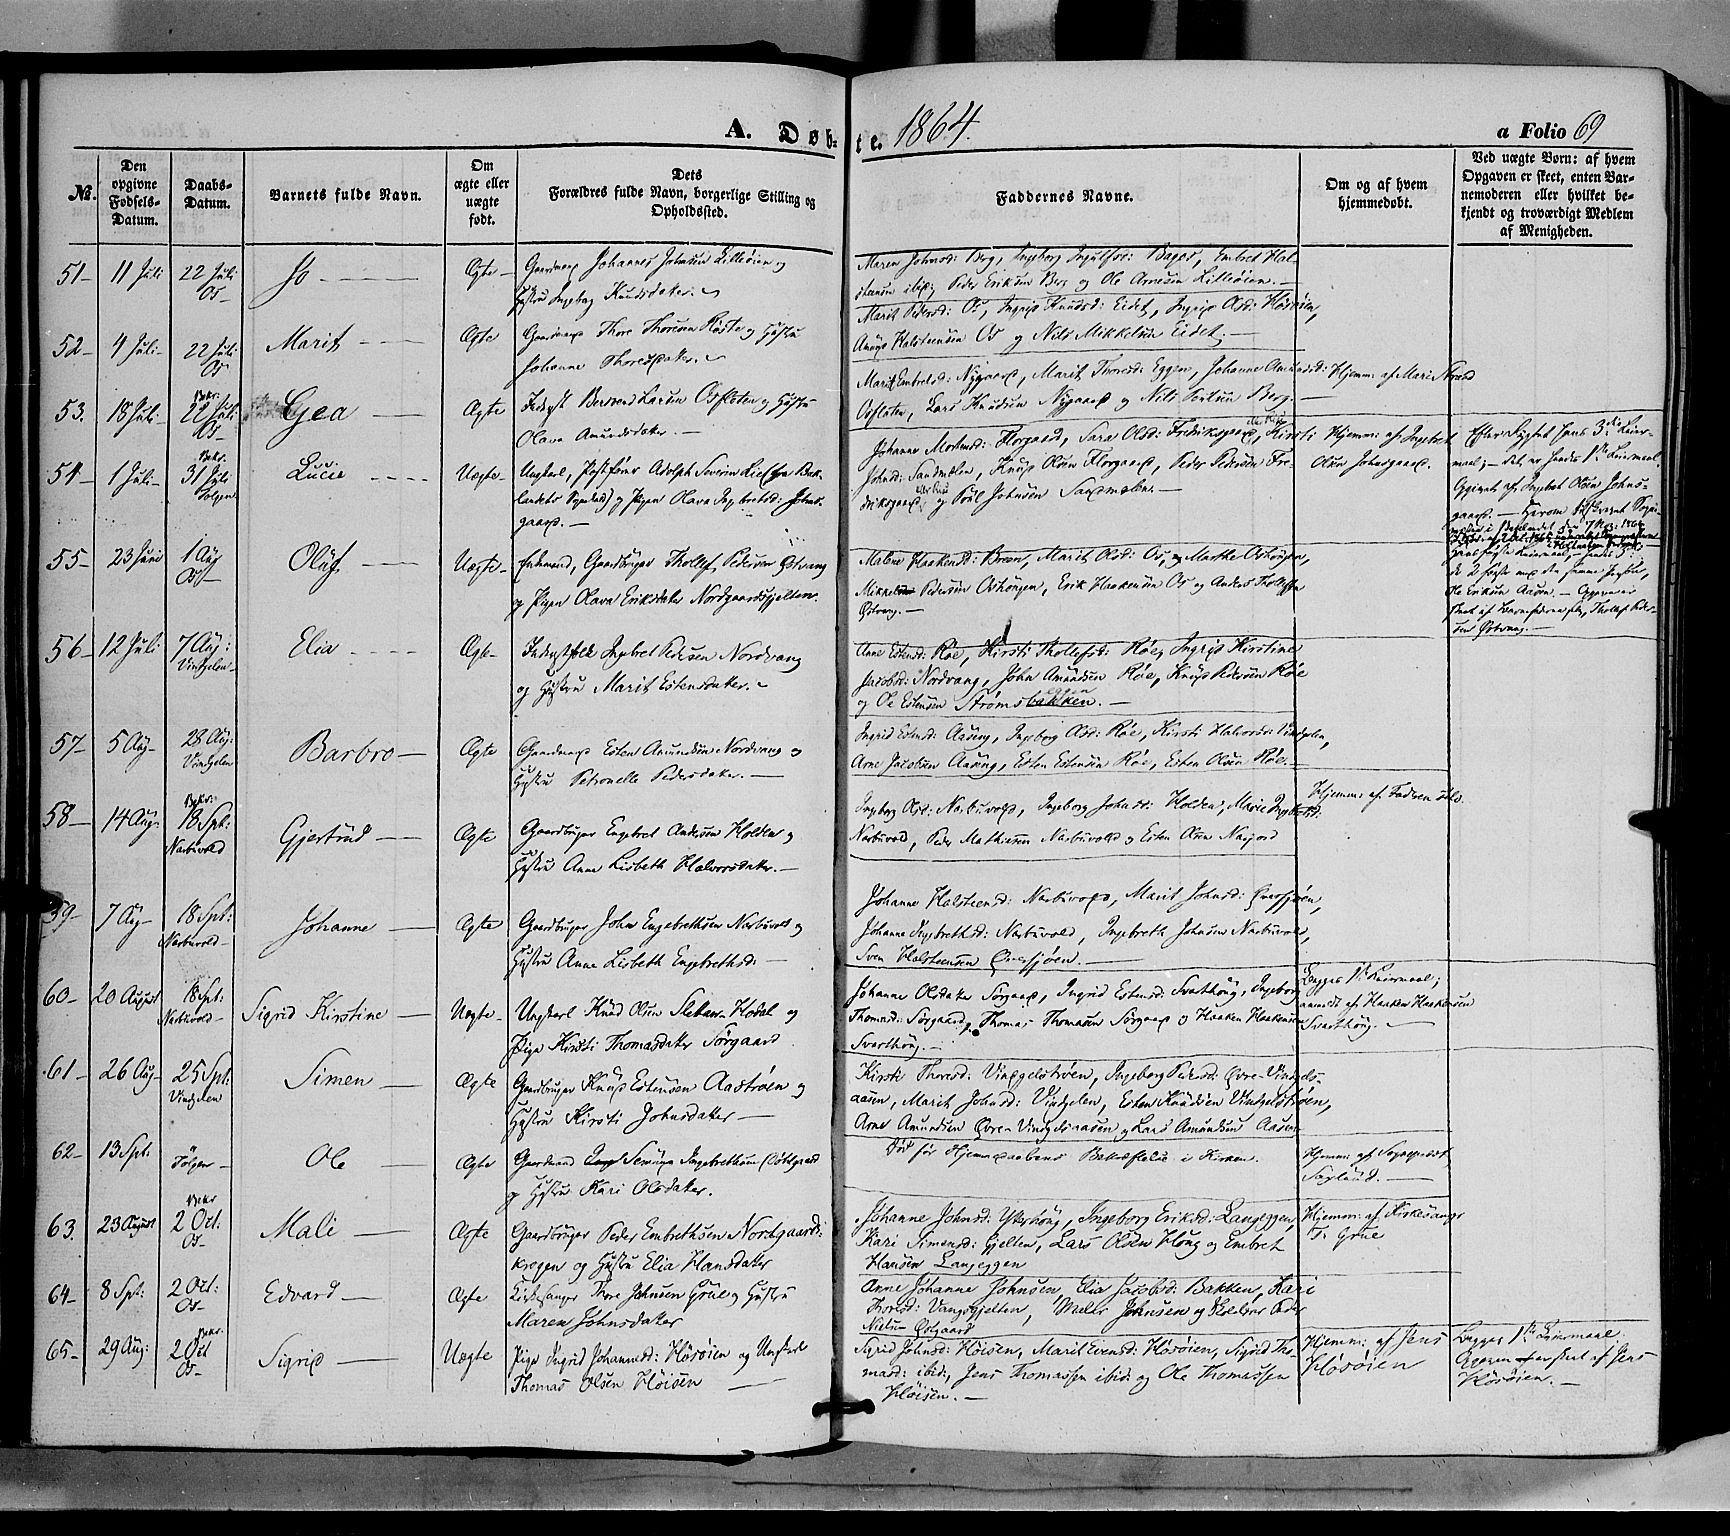 A. Døb-
te. 1864.
a Folio 69
No.
Den opgivne Fødsels-Datum.
Daabs-Datum.
Barnets fulde Navn.
Om ægte eller uægte født.
Dets Forældres fulde Navn, borgerlige Stilling og Opholdssted.
Faddernes Navne.
Om og af hvem hjemmedøbt.
Ved uægte Børn: af hvem Opgaven er skeet, enten Barnemoderen eller hvilket bekjendt og troværdigt Medlem af Menigheden.
51- 11 Juli 22 Juli Os- Jo Ægte- Gaardmand Johannes Johnsen Lilleøien og
Hustru Ingeborg Knudsdatter.
Maren Johnsd: Berg, Ingeborg
Embret Hal-
steensen ibid; Peder Eriksen Berg og Ole Arnesen Lilleøien.-
52- 4 Juli- 22 Juli Os- Marit Ægte Gaardmand Thore Thoresen Røste og Hustru
Johanne Thoresdatter.
Marit Pedersd: Os, Ingrid Knudsd: Eidet, Ingrid Olsd: Høsøien,
Halsteensen Os og Nils Mikkelsen Eidet.-
53. 18 Juli- Bekr. 22 Juli Os- Gea Ægte Bersvend Larsen Osfloten og Hustru
Olava Amundsdatter.-
Marit Embretsd: Nygaard, Marit Thoresd: Eggen, Johanne Amundsd:
Osfloten, Lars Knudsen Nygaard og Nils Berg.-
Hjemm: af Mari
54- 1 Juli- Bekr. 31 Juli Tolgen Lucie Uægte- Ungkarl, Adolph Severin
og Pigen Olava Ingebretsd: Johns-
gaard.-
Johanne Mortensd: Florgaard, Sara Olsd: Fredriksgaard, Kirsti
Johnsd: Sandmælen, Knud Olsen Florgaard, Peder Pedersen Fre-
driksgaard, og Poul Johnsen Sandmælen.-
Hjemm: af Ingebret
Olsen Johnsgaard.
Efter Sigende hans 3die Leier-
maal; - det er hendes 1ste Leiermaal.
Opgivet af Ingebret Olsen Johns-
gaard.-
55- 23 Juni 1 Aug Os- Oluf Uægte- Enkemand, Gaardbruger Thollef Pedersen Østvang
og Pigen Olava Eriksdatter Nordgaardsgjelten.
Malene Haakensd: Breen, Marit Olsd: Os, og Marthe Oshougen,
Mikkel Pedersen Oshougen, Erik Haakensen Os og Anders Thollefsen
Østvang.-
de 2 første med den samme Person,
Ole Eriksen Aasen.- Opgaven er
skeet af Barnefaderen selv, Thollef Peder-
sen Østvang.-
56- 12 Juli 7 Aug: Vindgelen- Elia Ægte- Ingebret Pedersen Nordvang
og Hustru Marit Estensdatter.
Anne Estensd: Røe, Kirsti Thollefsd: Røe, Ingrid Kirstine
Jacobsd: Nordvang, John Amundsen Røe, Knud Pedersen Røe
og Ole Estensen Strømsbakken.-
57- 5 Aug- 28 Aug: Vindgelen Barbro- Ægte Gaardmand Esten Amundsen Nordvang og
Hustru Petronelle Pedersdatter.-
Ingrid Estensd: Aaseng, Ingeborg Olsd: Røe, Kirsti Halvorsd: Vindgelen,
Arne Jacobsen Aaseng, Esten Estensen Røe, Esten Olsen Røe.-
58- 14 Aug: Bekr: 18 Spt: Narbuvold Gjertrud- Ægte Gaardbruger Engebret Andersen Holden og
Hustru Anne Lisbeth Halvorsdatter.-
Ingeborg Olsd: Narbuvold, Ingeborg Johnsd: Holden, Marie Ingebretsd:
Narbuvold, Peder Mathiesen Narbuvold og Esten Olsen Narjord
Hjemm: af Faderen selv.
59- 7 Aug- 18 Spt: Narbuvold- Johanne- Ægte Gaardbruger John Engebrethsen Narbuvold og
Hustru Anne Lisbeth Engebrethsd:-
Johanne Halsteensd: Narbuvold, Marit Johnsd: Øversjøen,
Johanne Ingebrethsd: Narbuvold, Ingebreth Johnsen Narbuvold,
Sven Halsteensen Øversjøen.-
60- 20 August 18 Spt: Narbuvold- Sigrid Kirstine- Uægte- Ungkarl Knud Olsen Sletten Hodal og
Pige Kirsti Thomasdatter Sørgaard
Johanne Olsdatter Sørgaard, Ingrid Estensd: Svarthoug, Ingeborg
Thomasd: Sørgaard, Thomas Thomasen Sørgaard og Haaken Haakensen
Svarthoug.-
Begges 1ste Leiermaal;
anmeldt af Haaken Haakensen
Svarthoug.-
61- 26 Aug- 25 Spt: Vindgelen Simen- Ægte Gaardbruger Knud Estensen Aastrøen og
Hustru Kirsti Johnsdatter-
Kirsti Thoresd: Vindgelstrøen, Ingeborg Pedersd: Øvre-Vindgels-
aasen, Marit Johnsd: Vindgelen, Esten Knudsen Vindgelstrøen,
Arne Amundsen Øvre-Vindgelsaasen og Lars Amundsen Aasen-
62- 13 Spt: Tolgen- Ole- Ægte Gaardmand Simen Ingebrethsen
og Hustru Kari Olsdatter.
Død før Hjemmedaabens Bekræftelse i Kirken.
Hjemm: af Sogneprest
63. 23 August Bekr 2 Oct: Os- Mali- Ægte Gaardbruger Peder Embrethsen Nordgaards-
krogen og Hustru Elia Hansdatter
Johanne Johnsd: Ytterhoug, Ingeborg Eriksd: Langeggen,
Kari Simensd: Gjelten, Lars Olsen Houg og Embret
Hansen Langeggen
Hjemm: af Kirkesanger
T. Grue
64- 8 Spt: 2 Oct: Os- Edvard- Ægte Kirkesanger Thore Johnsen Grue og Hustru
Maren Johnsdatter
Anne Johanne Johnsen, Elia Jacobsd: Bakken, Kari
Thoresd: Vangsgjelten, Johnsen og Peder
Nielsen Østgaard
65- 29 Aug: Bekr. 2 Oct Os- Sigrid- Uægte Pige Ingrid Johannesd: Høsøien og Ungkarl
Thomas Olsen Høisen-
Sigrid Johnsd: Høisen, Marit Evensd: Høsøien, Sigrid Tho-
masd: ibid:, Jens Thomassen ibid: og Ole Thomassen
Høisen.-
Hjemm: af Jens
Høsøien
Begges 1ste Leiermaal.
Opgaven er skeet af Jens
Høsøien.-